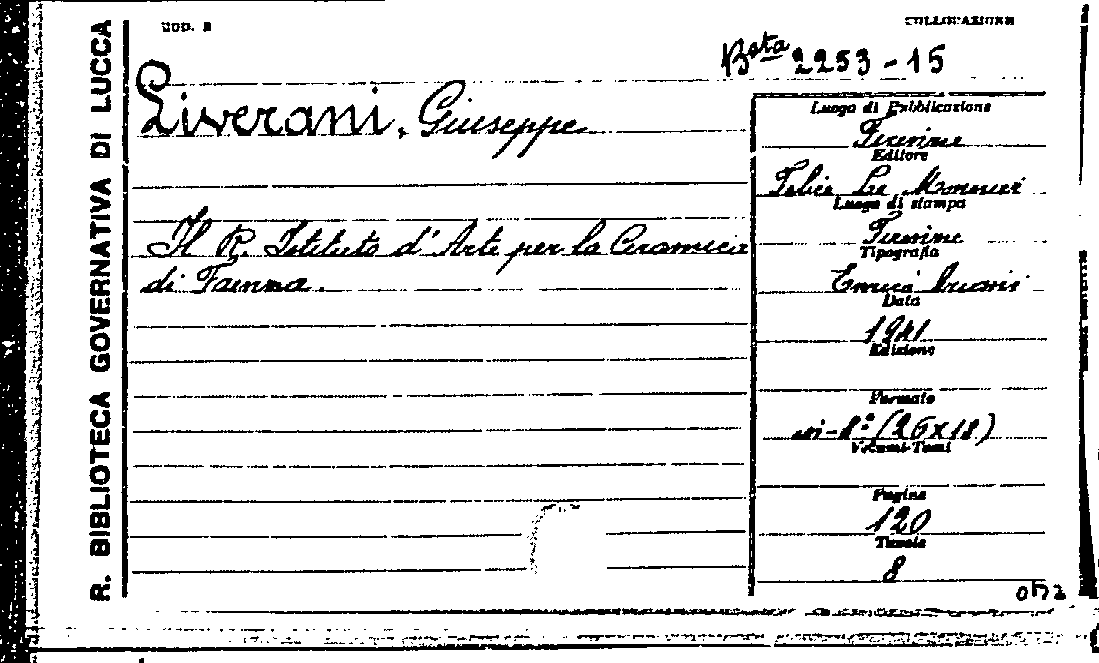 R. BIBLIOTECA GOVERNATIVA DI LUCCA
MOD. 2
COLLOCAZIONE
Bsta 2253-15
Liverani, Giuseppe
Il R. Istituto d'Arte per la Ceramica
di Faenza.
Luogo di Pubblicazione
Firenze
Editore
Felice Le Monnier
Luogo di stampa
Firenze
Tipografia
Enrico Ariani
Data
1941
Edizione
Formato
in-8º (26x18)
Volumi-Tomi
Pagine
120
Tavole
8